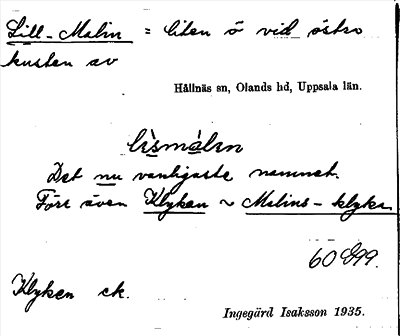 Lill-Malin = liten ö vid östra
kusten av
Hållnäs sn, Olands hd, Uppsala län.
lìsmálen
Det nu vanligaste namnet.
Förr även Klykan ~ Malins-klyka
60 Ö99.
Klyken ek.
Ingegärd Isaksson 1935.